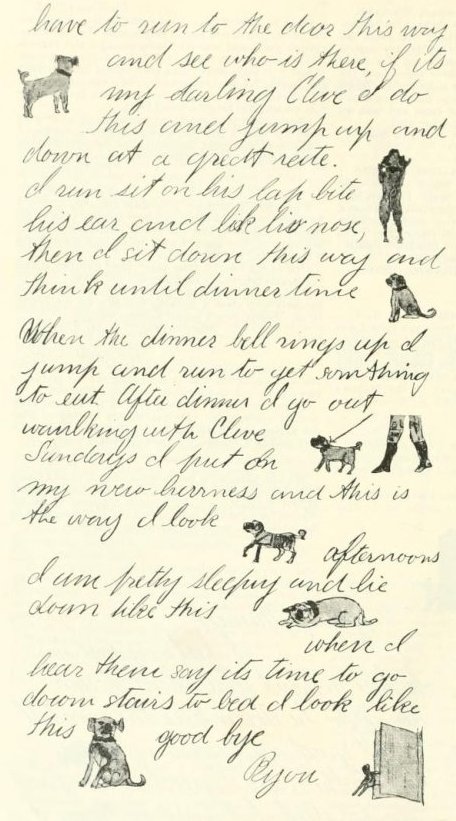 have to run to the door this way
and see who is there, if its
my darling Clive I do
this and jump up and
down at a great rate.
I run sit on his lap bite
his ear, and lik his nose,
then I sit down this way and
think until dinner time
When the dinner bell rings up I
jump and run to get somthing
to eat. After dinner I go out
waulking with Clive
Sundays I put on
my new herrness and this is
the way I look
afternoons
I am pretty sleepy and lie
down like this
when I
hear them say its time to go
down stairs to bed I look like
this good bye
Bijou